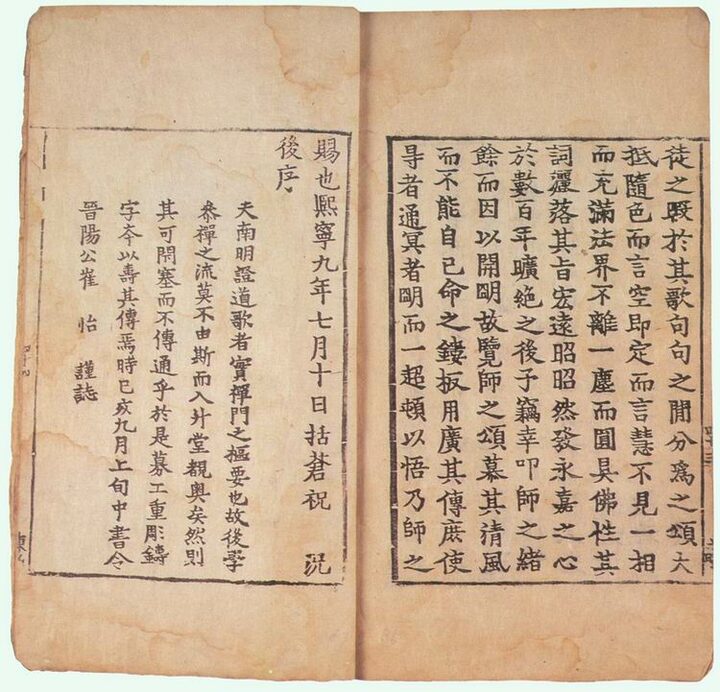 徒之殹於其歌句句之閒分爲之頌大
抵隨色而言空即定而言慧不見一相
而充滿法界不離一塵而圓具佛性其
詞灑落其旨宏遠昭昭然發永嘉之心
於數百年曠絶之後予竊幸叩師之緒
餘而因以開明故覽師之頌慕其清風
而不能自已命之鏤板用廣其傳庶使
㝵者通冥者明而一超頓以悟乃師之
賜也熙寧九年七月十日括蒼祝 況
後序
夫南明證道歌者實禪門之樞要也故後學
叅禪之流莫不由斯而入升堂覩奥矣然則
其可閉塞而不傳通乎於是募工重彫鑄
字夲以壽其傳焉時己亥九月上旬中書令
晉陽公崔 怡 謹誌